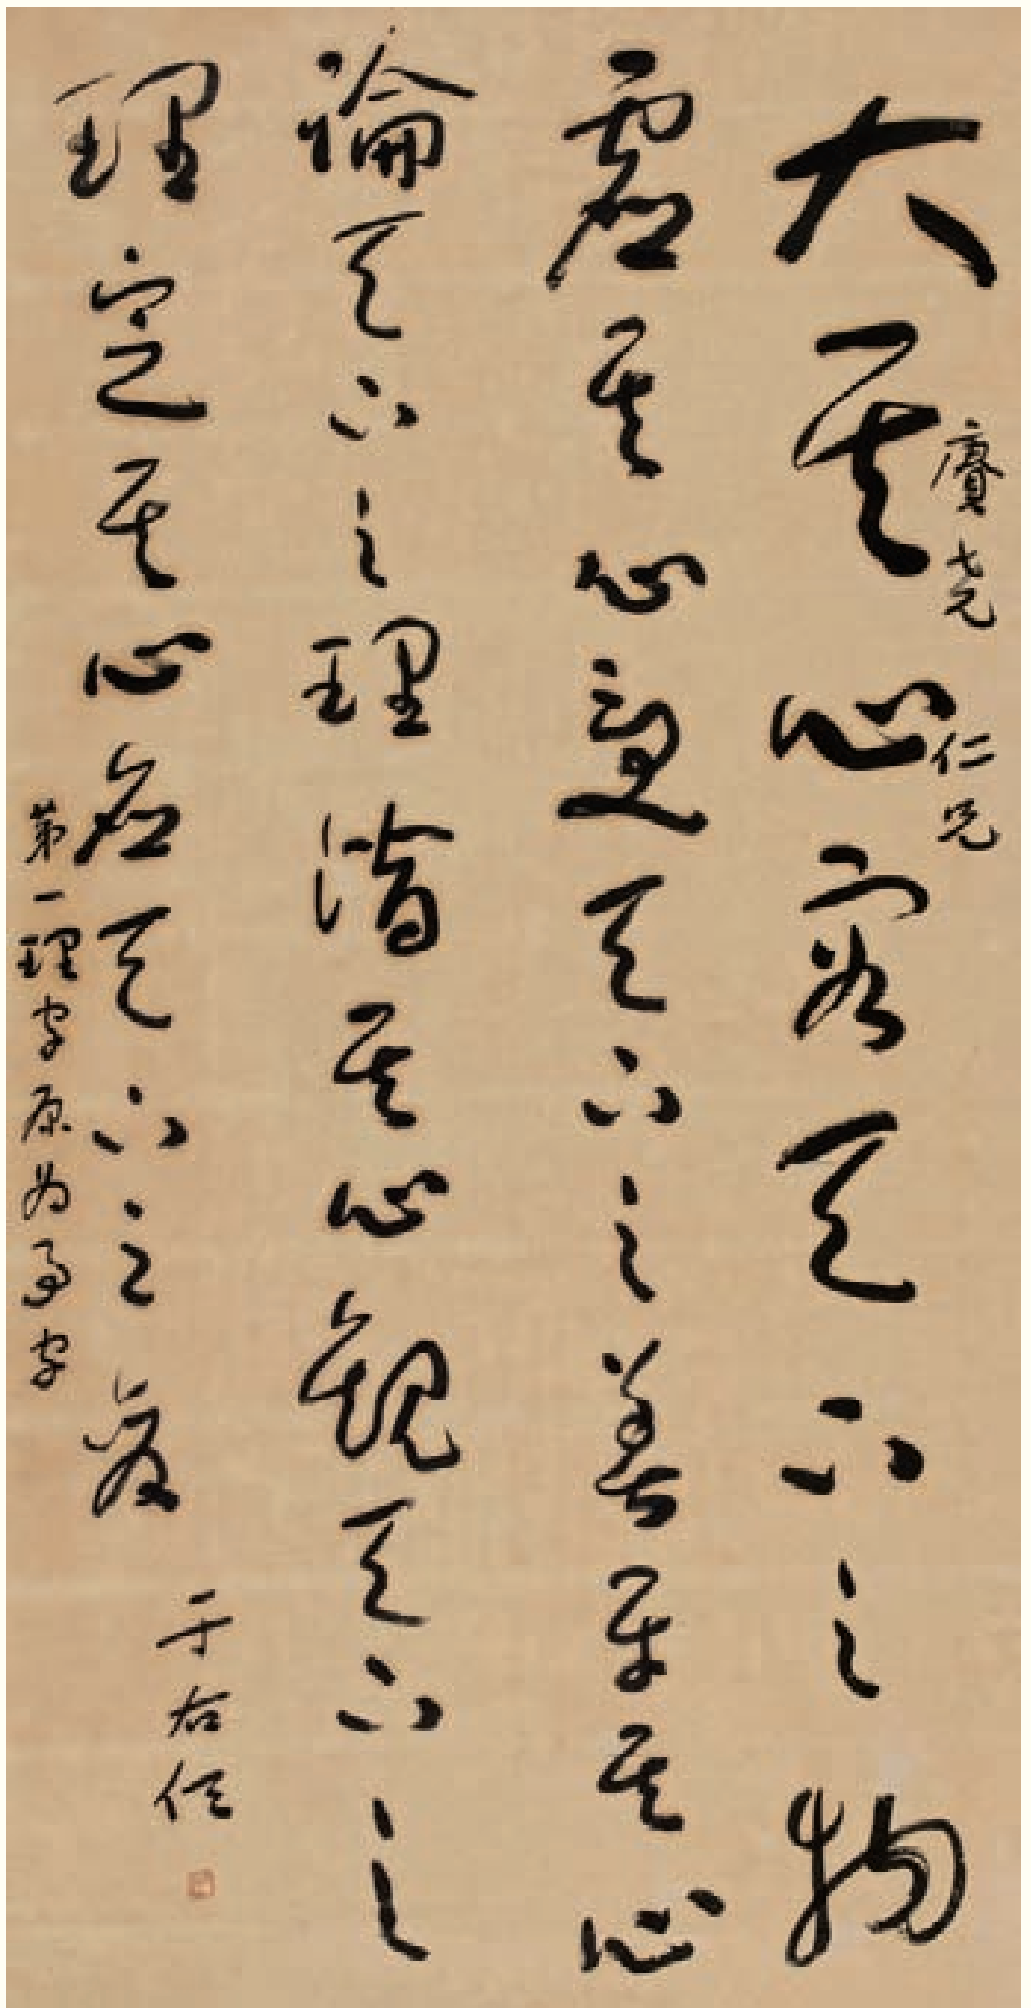 大其心容天下之物
虛其心受天下之善平其心
論天下之理潛其心觀天下之
理定其心應天下之變
賡堯仁兄
第一理字原為事字
于右任